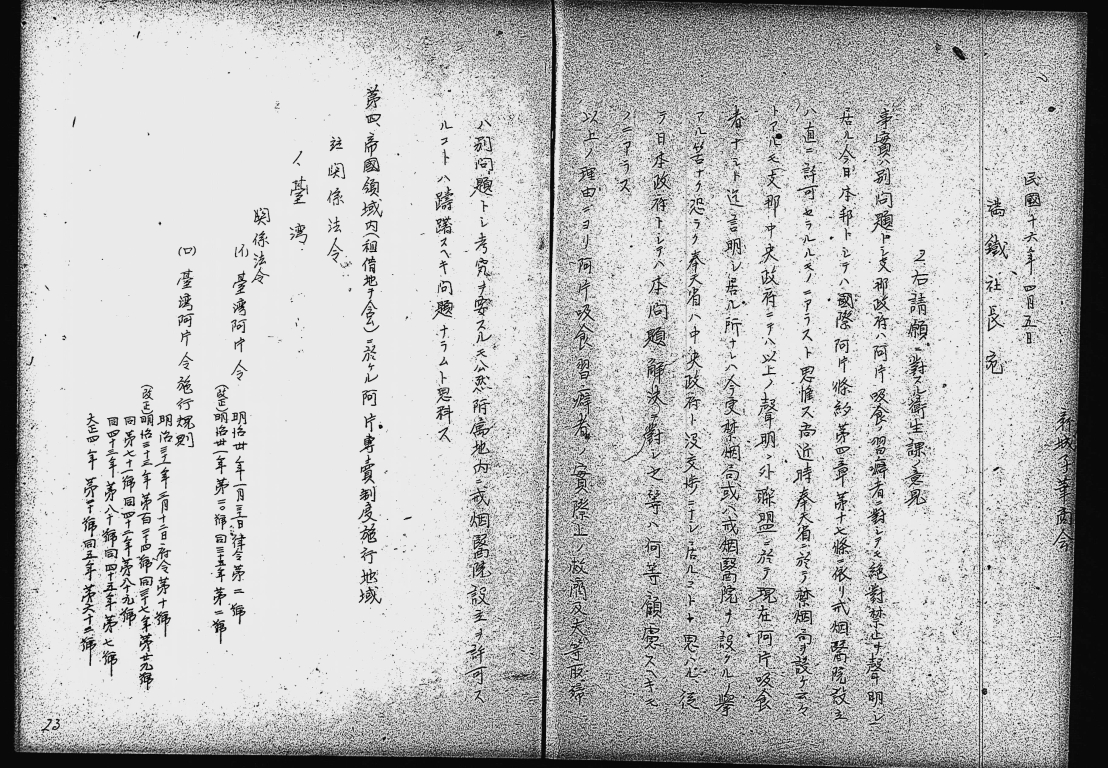 新城子華商会
民國十六年四月五日
満鐵社長宛
2、右請願ニ對スル衛生課ノ意見
事實ハ別問題トシ支那政府ハ阿片吸食ノ習癖者ニ對シテモ絶對禁止ヲ聲明シ
居ル今日本邦トシテハ國際阿片條約第四章第十七條ニ依リ戒烟醫院設立
ハ直ニ許可セラルルモノニアラスト思惟ス尚近時奉天省ニ於テ禁烟局ヲ設ケ
トアルモ支那中央政府ニテハ以上ノ聲明ノ外聯盟ニ於テ現在阿片吸食
者ナシト迄言明シ居ル所ナレハ今更禁烟局或ハ戒烟醫院ヲ設クル
アル筈ナク恐ラク奉天省ハ中央政府ト没交渉ニテシ居ルコトト思ハル従
テ日本政府トシテハ本問題解決ニ對シ之等ハ何等顧慮スヘキモ
ノニアラス
以上ノ理由ニヨリ阿片吸食習癖者ノ實際上ノ救濟及
ハ別問題トシ考究ヲ要スルモ公然附属地内ニ戒烟醫院設立ヲ許可ス
ルコトハ躊躇スヘキ問題ナラムト思料ス
第四、帝國領域内(租借地ヲ含ム)ニ於ケル阿片專賣制度施行地域
註関係法令
1、臺灣
関係法令
(イ)臺灣阿片令 明治卅年一月三日律令第二號
(改正)明治卅一年第二〇號同三五年第二號
(ロ)臺灣阿片令施行規則
明治三十一年二月十二日府令第十號
(改正)明治三十三年第百二四號同三七年第廿九號
同第七十一號同四十二年第八十九號
同四十三年第八十號同四十五年第七號
大正四年第十號同五年第六十三號
23